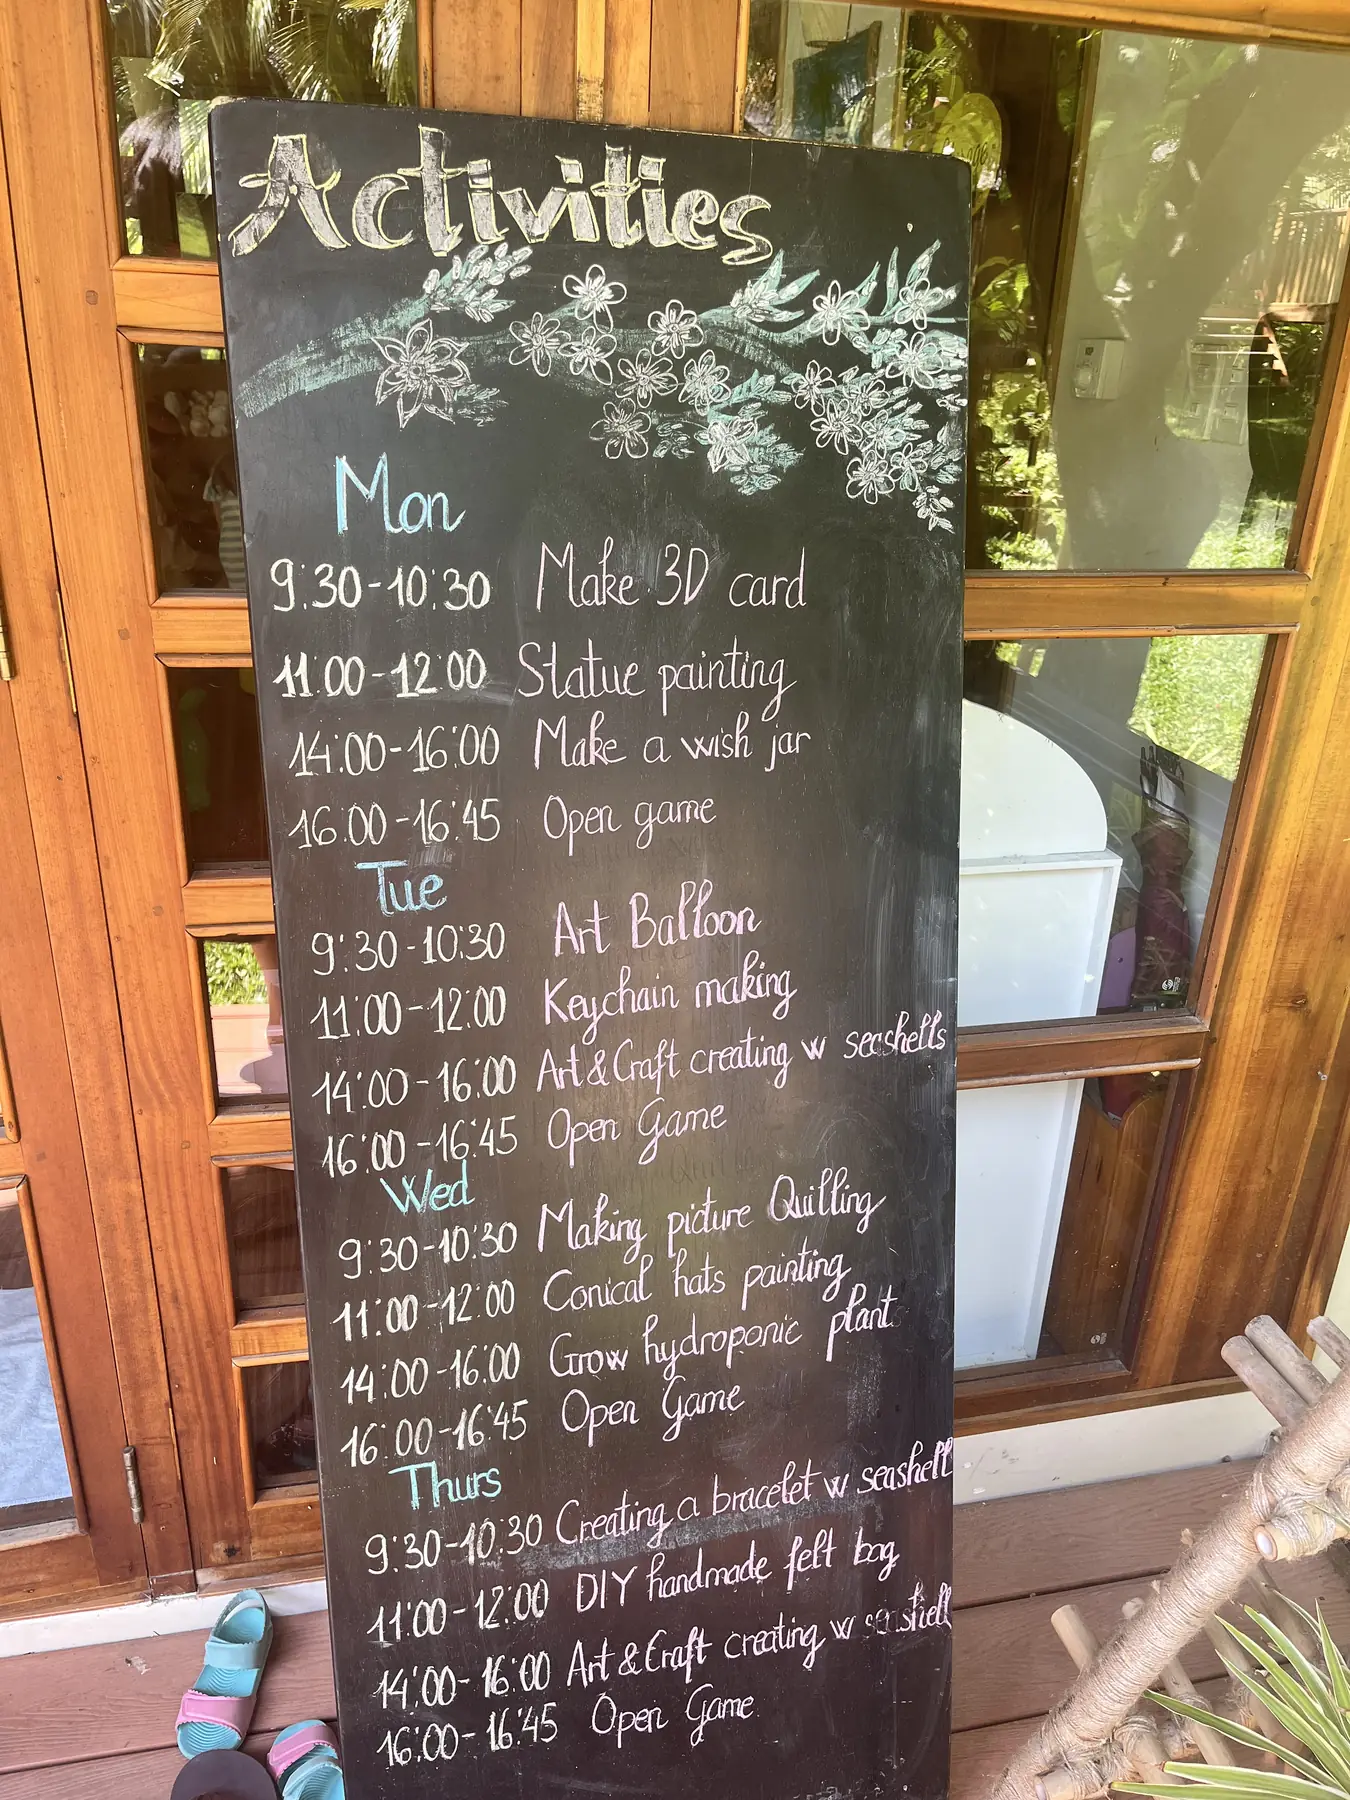 Activities
Mon
9:30-10:30 Make 3D card
11:00-12:00 Statue painting
14:00-16:00 Make a wish jar
16:00-16:45 Open game
Tue
9:30-10:30 Art Balloon
11:00-12:00 Keychain making
14:00-16:00 Art & Craft creating w seashells
16:00-16:45 Open Game
Wed
9:30-10:30 Making picture Quilling
11:00-12:00 Conical hats painting
14:00-16:00 Grow hydroponic plant
16:00-16:45 Open Game
Thurs
9:30-10:30 Creating a bracelet w seashell
11:00-12:00 DIY handmade felt bag
14:00-16:00 Art & Craft creating w seashell
16:00-16:45 Open Game